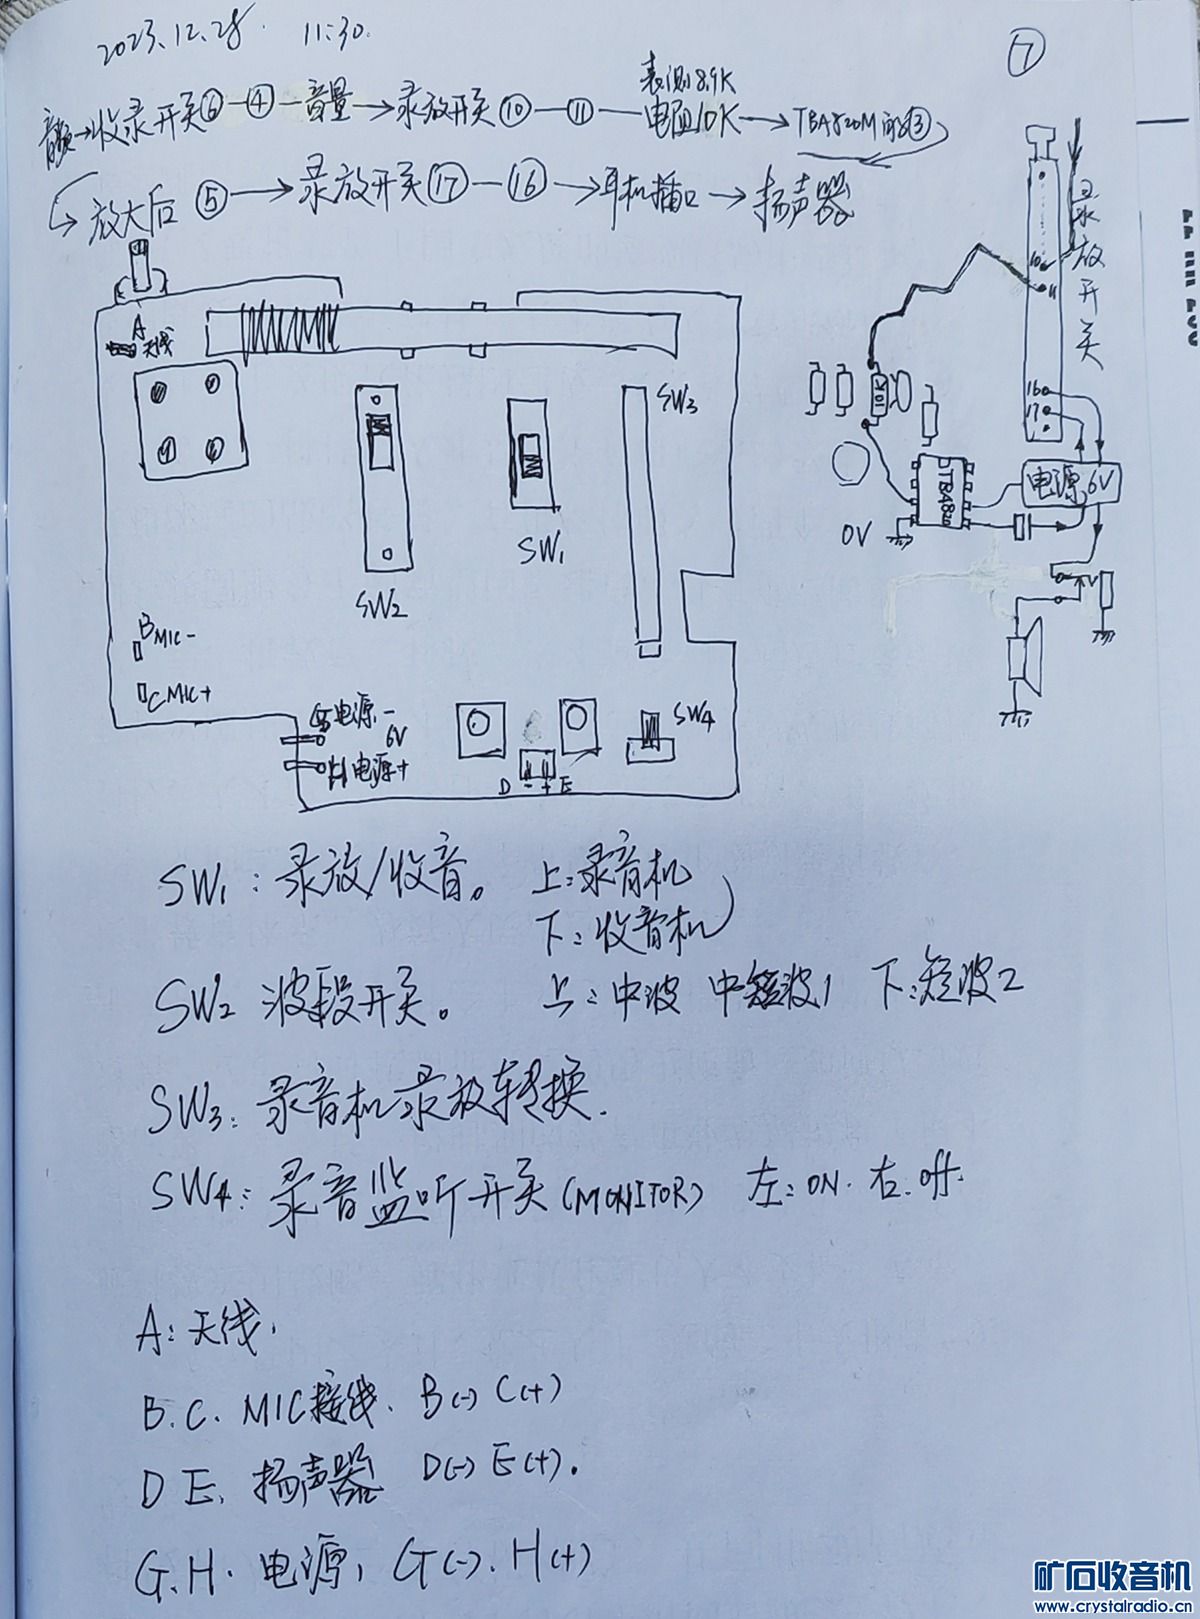 2023.12.28. 11:30.
⑦
表测8.9K
音频→收录开关⑥—④—音量→录放开关⑩—⑪—电阻10K→TBA820M的③
放大后⑤→录放开关⑰—⑯→耳机插口→扬声器
录放开关
10
11
16
17
A
天线
SW3
10K
TBA820
电源 6V
0V
SW1
SW2
B MIC-
C MIC+
G 电源-
6V
H 电源+
SW4
D - + E
SW1: 录放/收音。 上:录音机
下:收音机
SW2 波段开关。 上:中波 中短波1 下:短波2
SW3: 录音机录放转换.
SW4: 录音监听开关(MONITOR) 左:ON. 右.off.
A:天线.
B.C. MIC接线. B(-) C(+)
D E. 扬声器 D(-) E(+).
G.H. 电源, G(-). H(+)
矿石收音机
www.crystalradio.cn